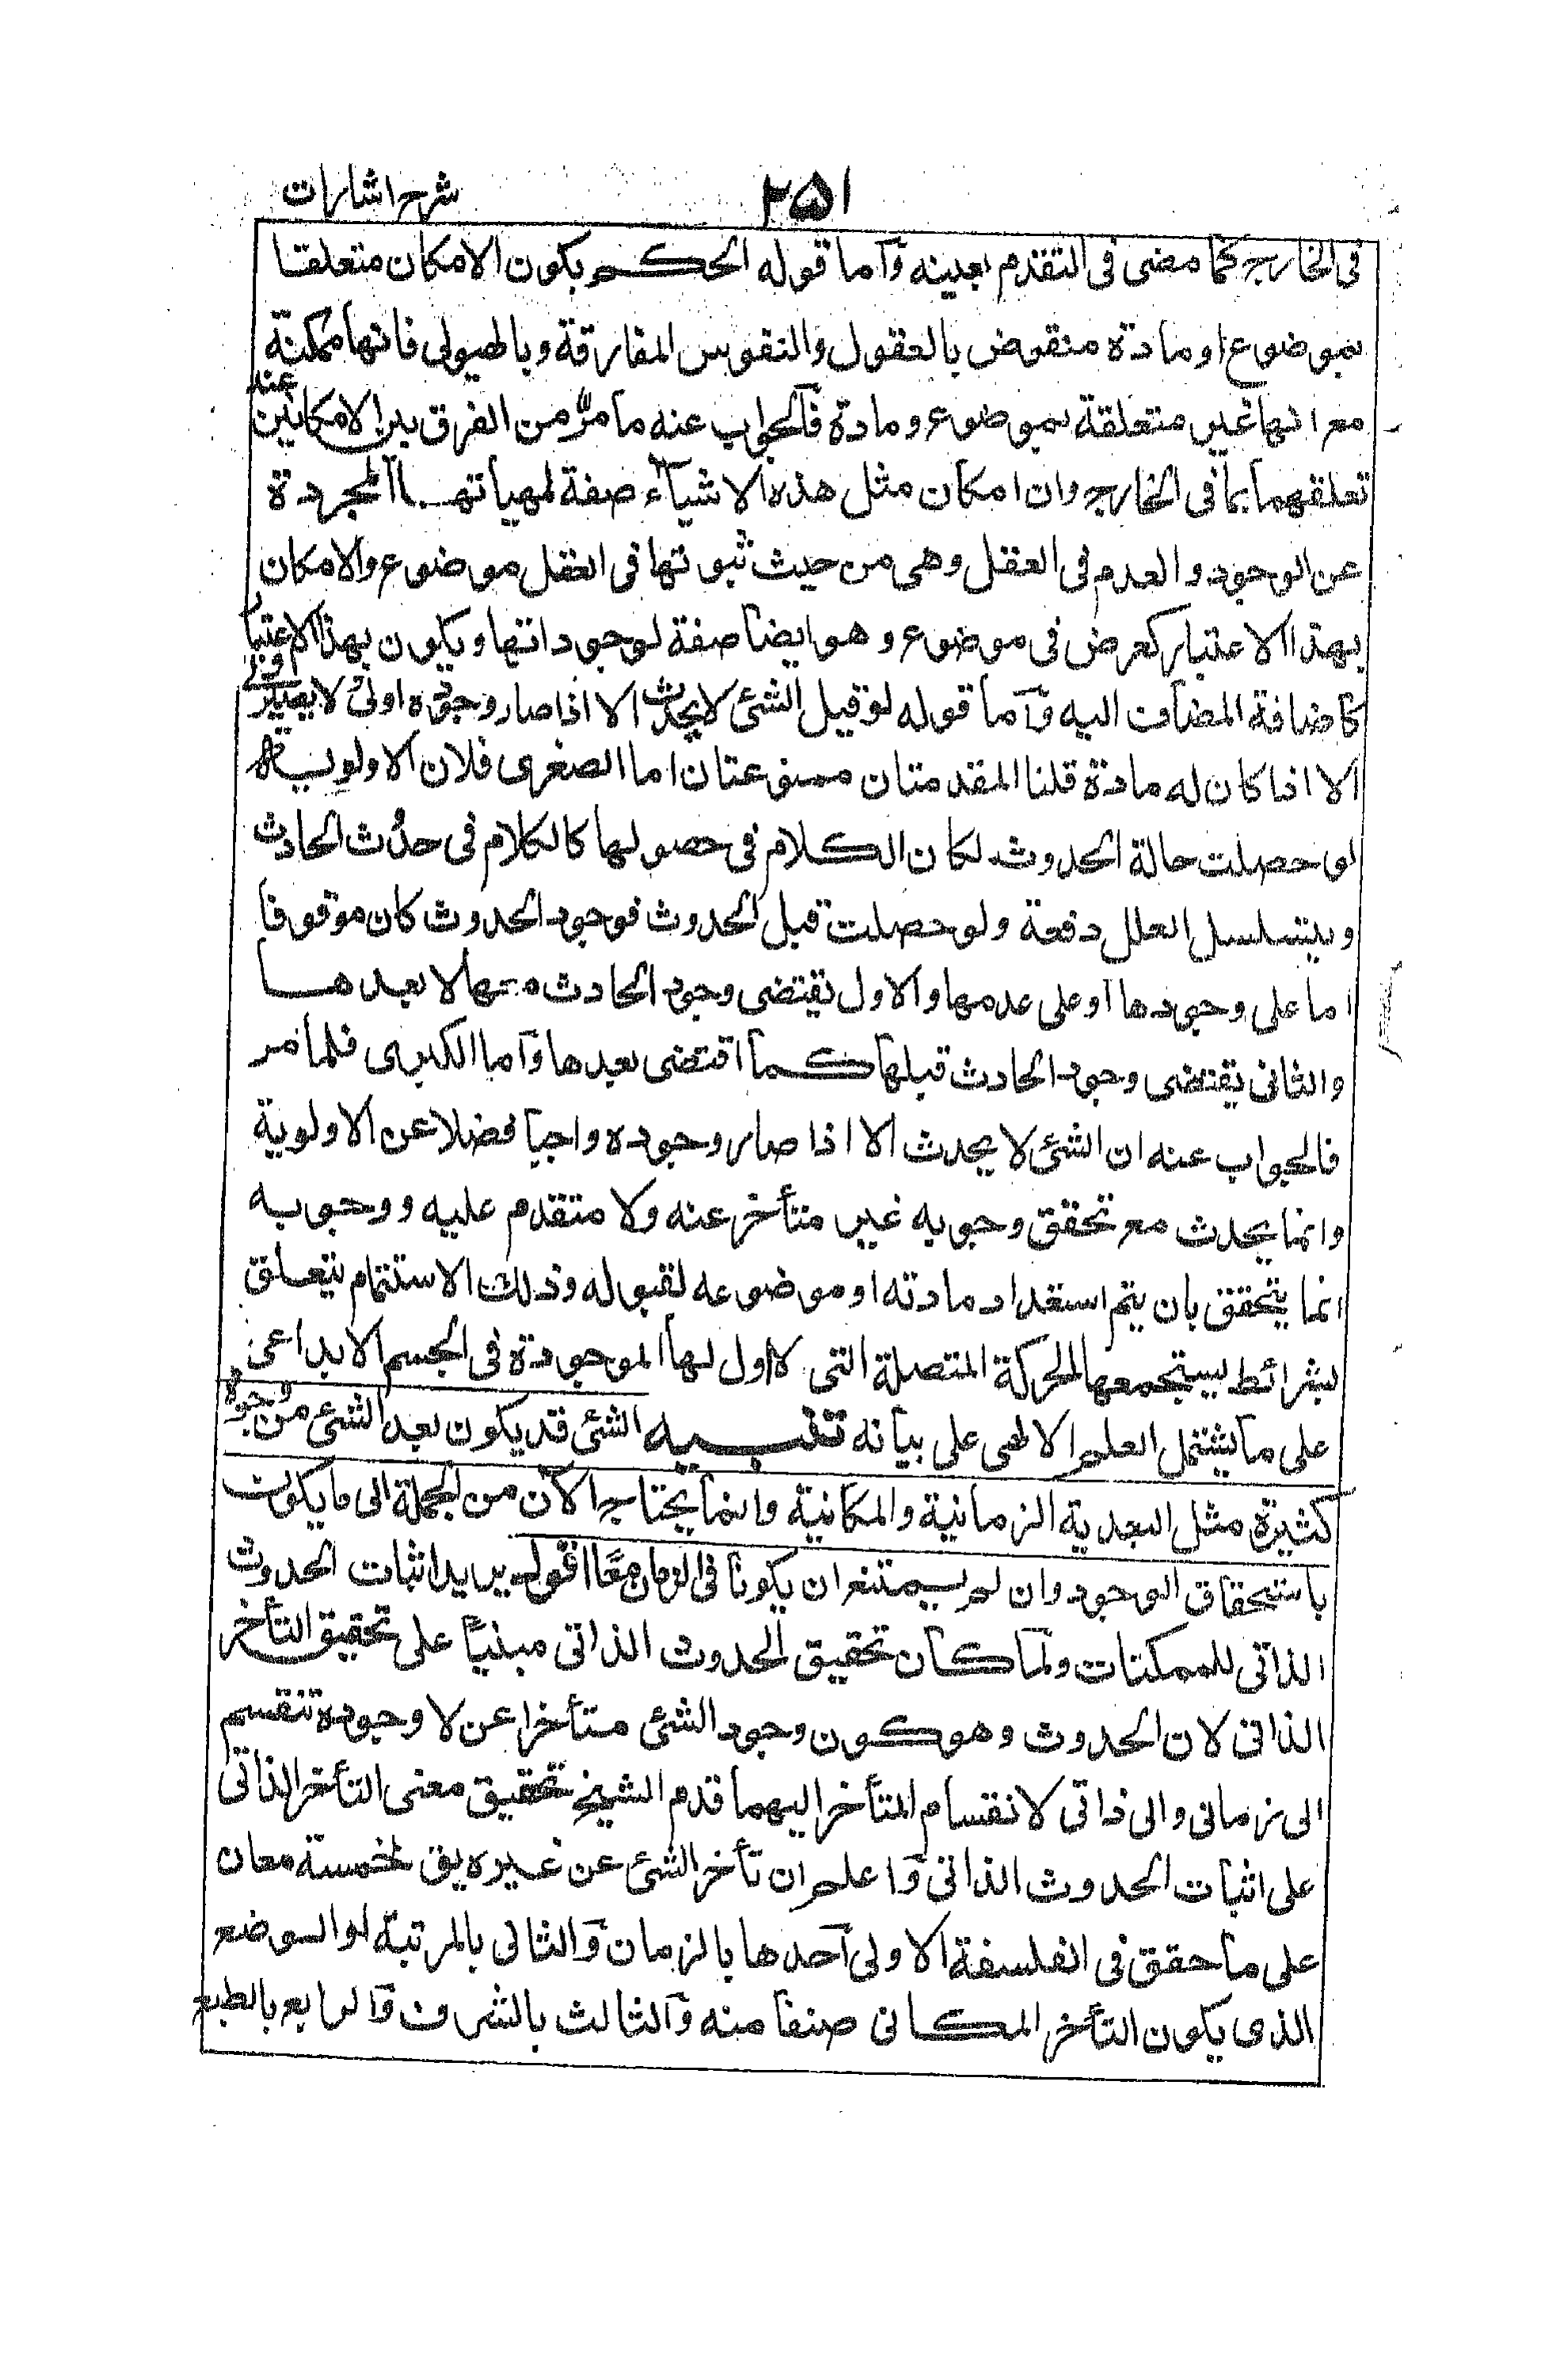 شرح اشارات
۲۵۱
فى الخارج كما مضى فى التقدم بعينه وآما قوله الحكم بكون الامكان متعلقا
بموضوع او مادة منقوض بالعقول والنفوس المفارقة وبالهيولى فانها ممكنة
مع انها غير متعلقة بموضوع ومادة فالجواب عنه ما مرّ من الفرق بين الامكانين عند
تعلقهما بما فى الخارج وان امكان مثل هذه الاشيآء صفة لمهياتها المجردة
عن الوجود والعدم فى العقل وهى من حيث ثبوتها فى العقل موضوع والامكان
بهذا الاعتبار كعرض فى موضوع وهو ايضا صفة لوجوداتها ويكون بهذا الاعتبار
كاضافة المضاف اليه وآما قوله لو قيل الشئ لا يحدث الا اذا صار وجوده اولى ولا يصير اولى
الا اذا كان له مادة قلنا المقدمتان ممنوعتان اما الصغرى فلان الاولوية
لو حصلت حالة الحدوث لكان الكلام فى حصولها كالكلام فى حدوث الحادث
ويتسلسل العلل دفعة ولو حصلت قبل الحدوث فوجود الحدوث كان موقوفا
اما على وجودها آو على عدمها والاول يقتضى وجود الحادث معها لا بعدها
والثانى يقتضى وجود الحادث قبلها كما اقتضى بعدها وآما الكبرى فلما مر
فالجواب عنه ان الشئ لا يحدث الا اذا صار وجوده واجبا فضلا عن الاولوية
وانما يحدث مع تحقق وجوبه غير متأخر عنه ولا متقدم عليه ووجوبه
انما يتحقق بان يتم استعداد مادته او موضوعه لقبوله وذلك الاستتمام يتعلق
بشرائط يستجمعها الحركة المتصلة التى لا اول لها الموجودة فى الجسم الابداعى
على ما يشتمل العلم الالهى على بيانه تنبيه الشئ قد يكون بعد الشئ من وجوه
كثيرة مثل البعدية الزمانية والمكانية وانما يحتاج الآن من الجملة الى ما يكون
باستحقاق الوجود وان لم يمتنع ان يكونا فى الزمان معًا اقول يريد اثبات الحدوث
الذاتى للممكنات ولما كان تحقيق الحدوث الذاتى مبنيًا على تحقيق التأخر
الذاتى لان الحدوث وهو كون وجود الشئ متأخرا عن لا وجوده تنقسم
الى زمانى والى ذاتى لانقسام المتأخر اليهما قدم الشيخ تحقيق معنى التأخر الذاتى
على اثبات الحدوث الذاتى وآعلم ان تأخر الشئ عن غيره يق لخمسة معان
على ما حقق فى الفلسفة الاولى آحدها بالزمان وآلثانى بالمرتبة او الوضع
الذى يكون التأخر المكانى صنفا منه وآلثالث بالشرف وآلرابع بالطبع